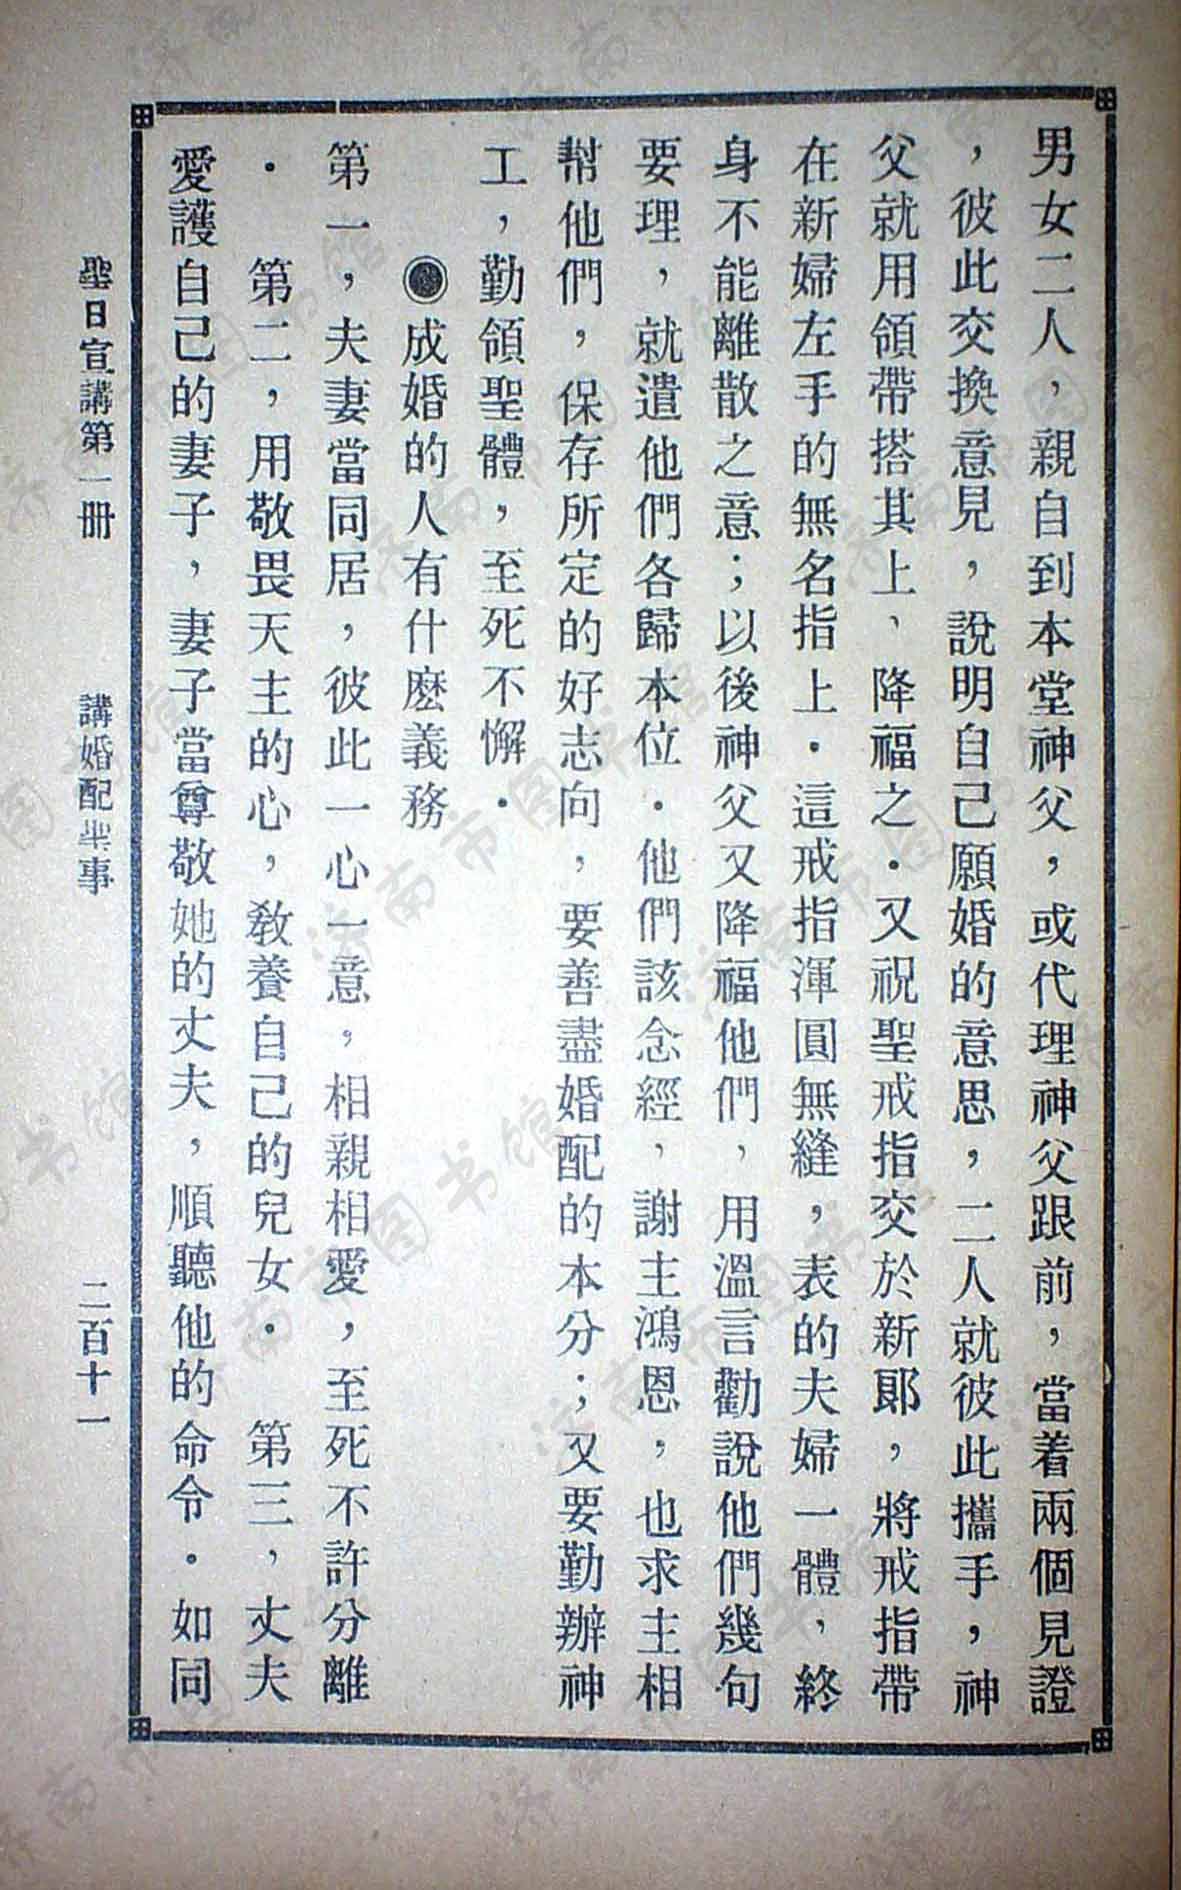 男女二人，親自到本堂神父，或代理神父跟前，當着兩個見證
，彼此交換意見，說明自己願婚的意思，二人就彼此攜手，神
父就用領帶搭其上、降福之．又祝聖戒指交於新郎，將戒指帶
在新婦左手的無名指上．這戒指渾圓無縫，表的夫婦一體，終
身不能離散之意；以後神父又降福他們，用溫言勸說他們幾句
要理，就遣他們各歸本位．他們該念經，謝主鴻恩，也求主相
幫他們，保存所定的好志向，要善盡婚配的本分；又要勤辦神
工，勤領聖體，至死不懈．
◉成婚的人有什麽義務
第一，夫妻當同居，彼此一心一意，相親相愛，至死不許分離
．　第二，用敬畏天主的心，教養自己的兒女．　第三，丈夫
愛護自己的妻子，妻子當尊敬她的丈夫，順聽他的命令．如同
聖日宣講第一册　講婚配聖事　二百十一
济南市图书馆